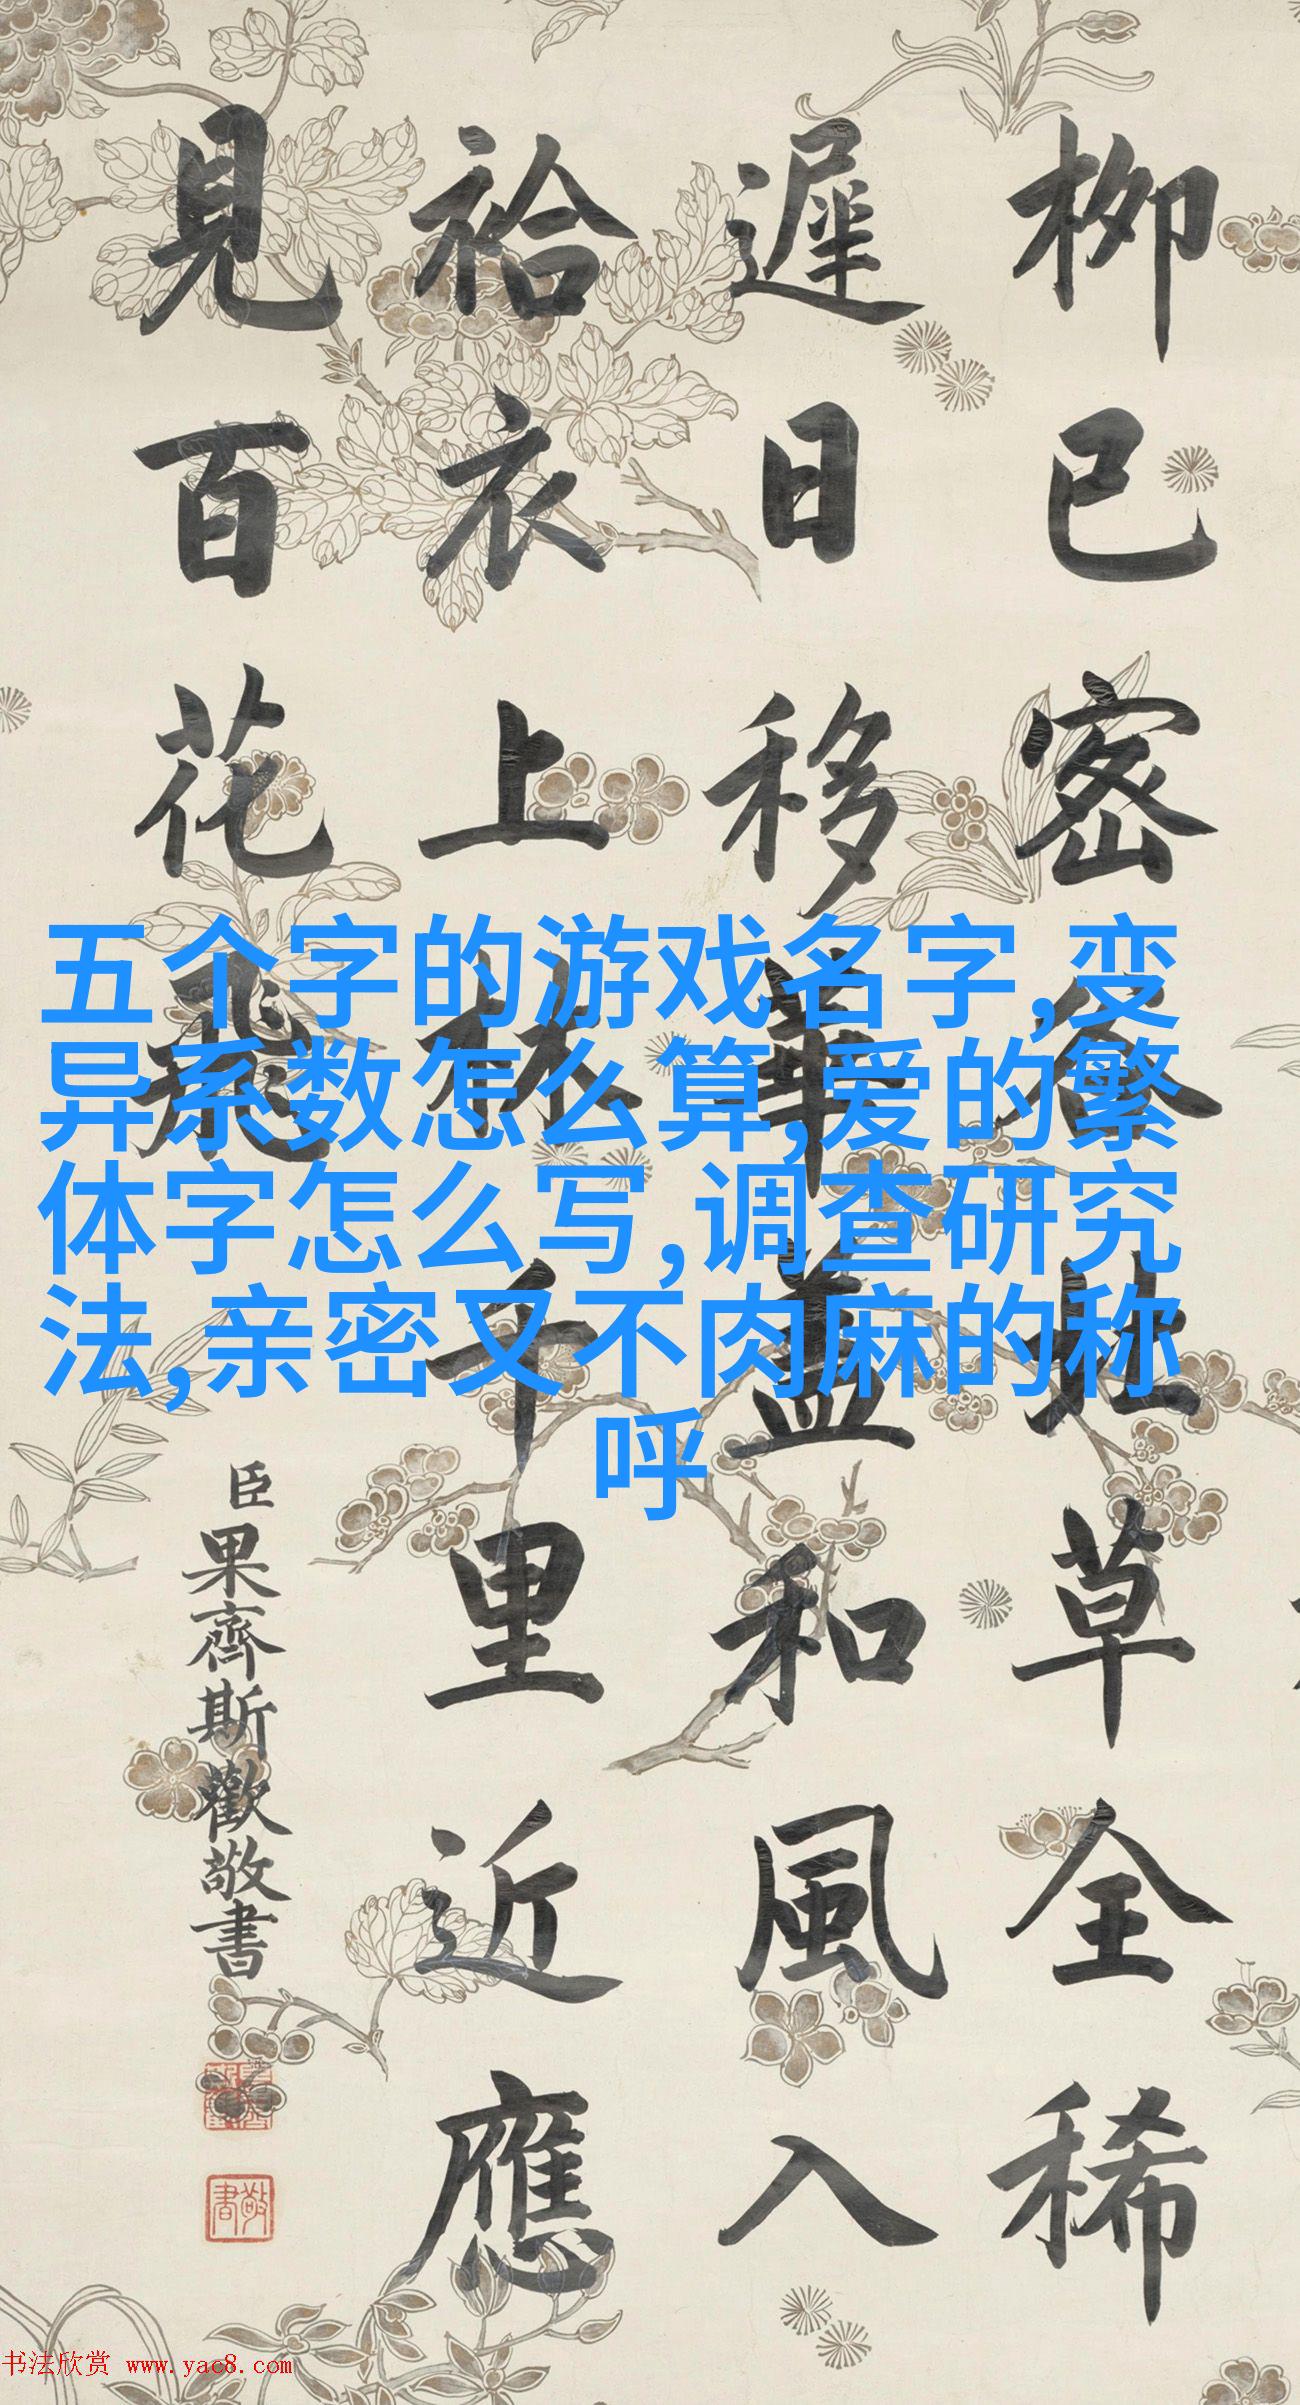 柳已密谷
杜草全稀
遲日移華
蓋和風入
袷衣上林
千里近應
見百花飛
臣果齊斯歡敬書
敬書
五个字的游戏名字,变
异系数怎么算,爱的繁
体字怎么写,调查研究
法,亲密又不肉麻的称
呼
书法欣赏 www.yac8.com